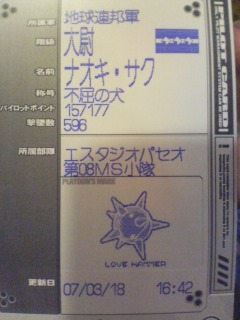 所属軍 地球連邦軍
階級 大尉
名前 ナオキ・サク
称号 不屈の犬
パイロットポイント 157177
撃墜数 596
所属部隊 エスタジオパセオ
第08MS小隊
PLATOON'S MARK
LOVE HAMMER
更新日 07/03/18 16:42
PILOT CARD